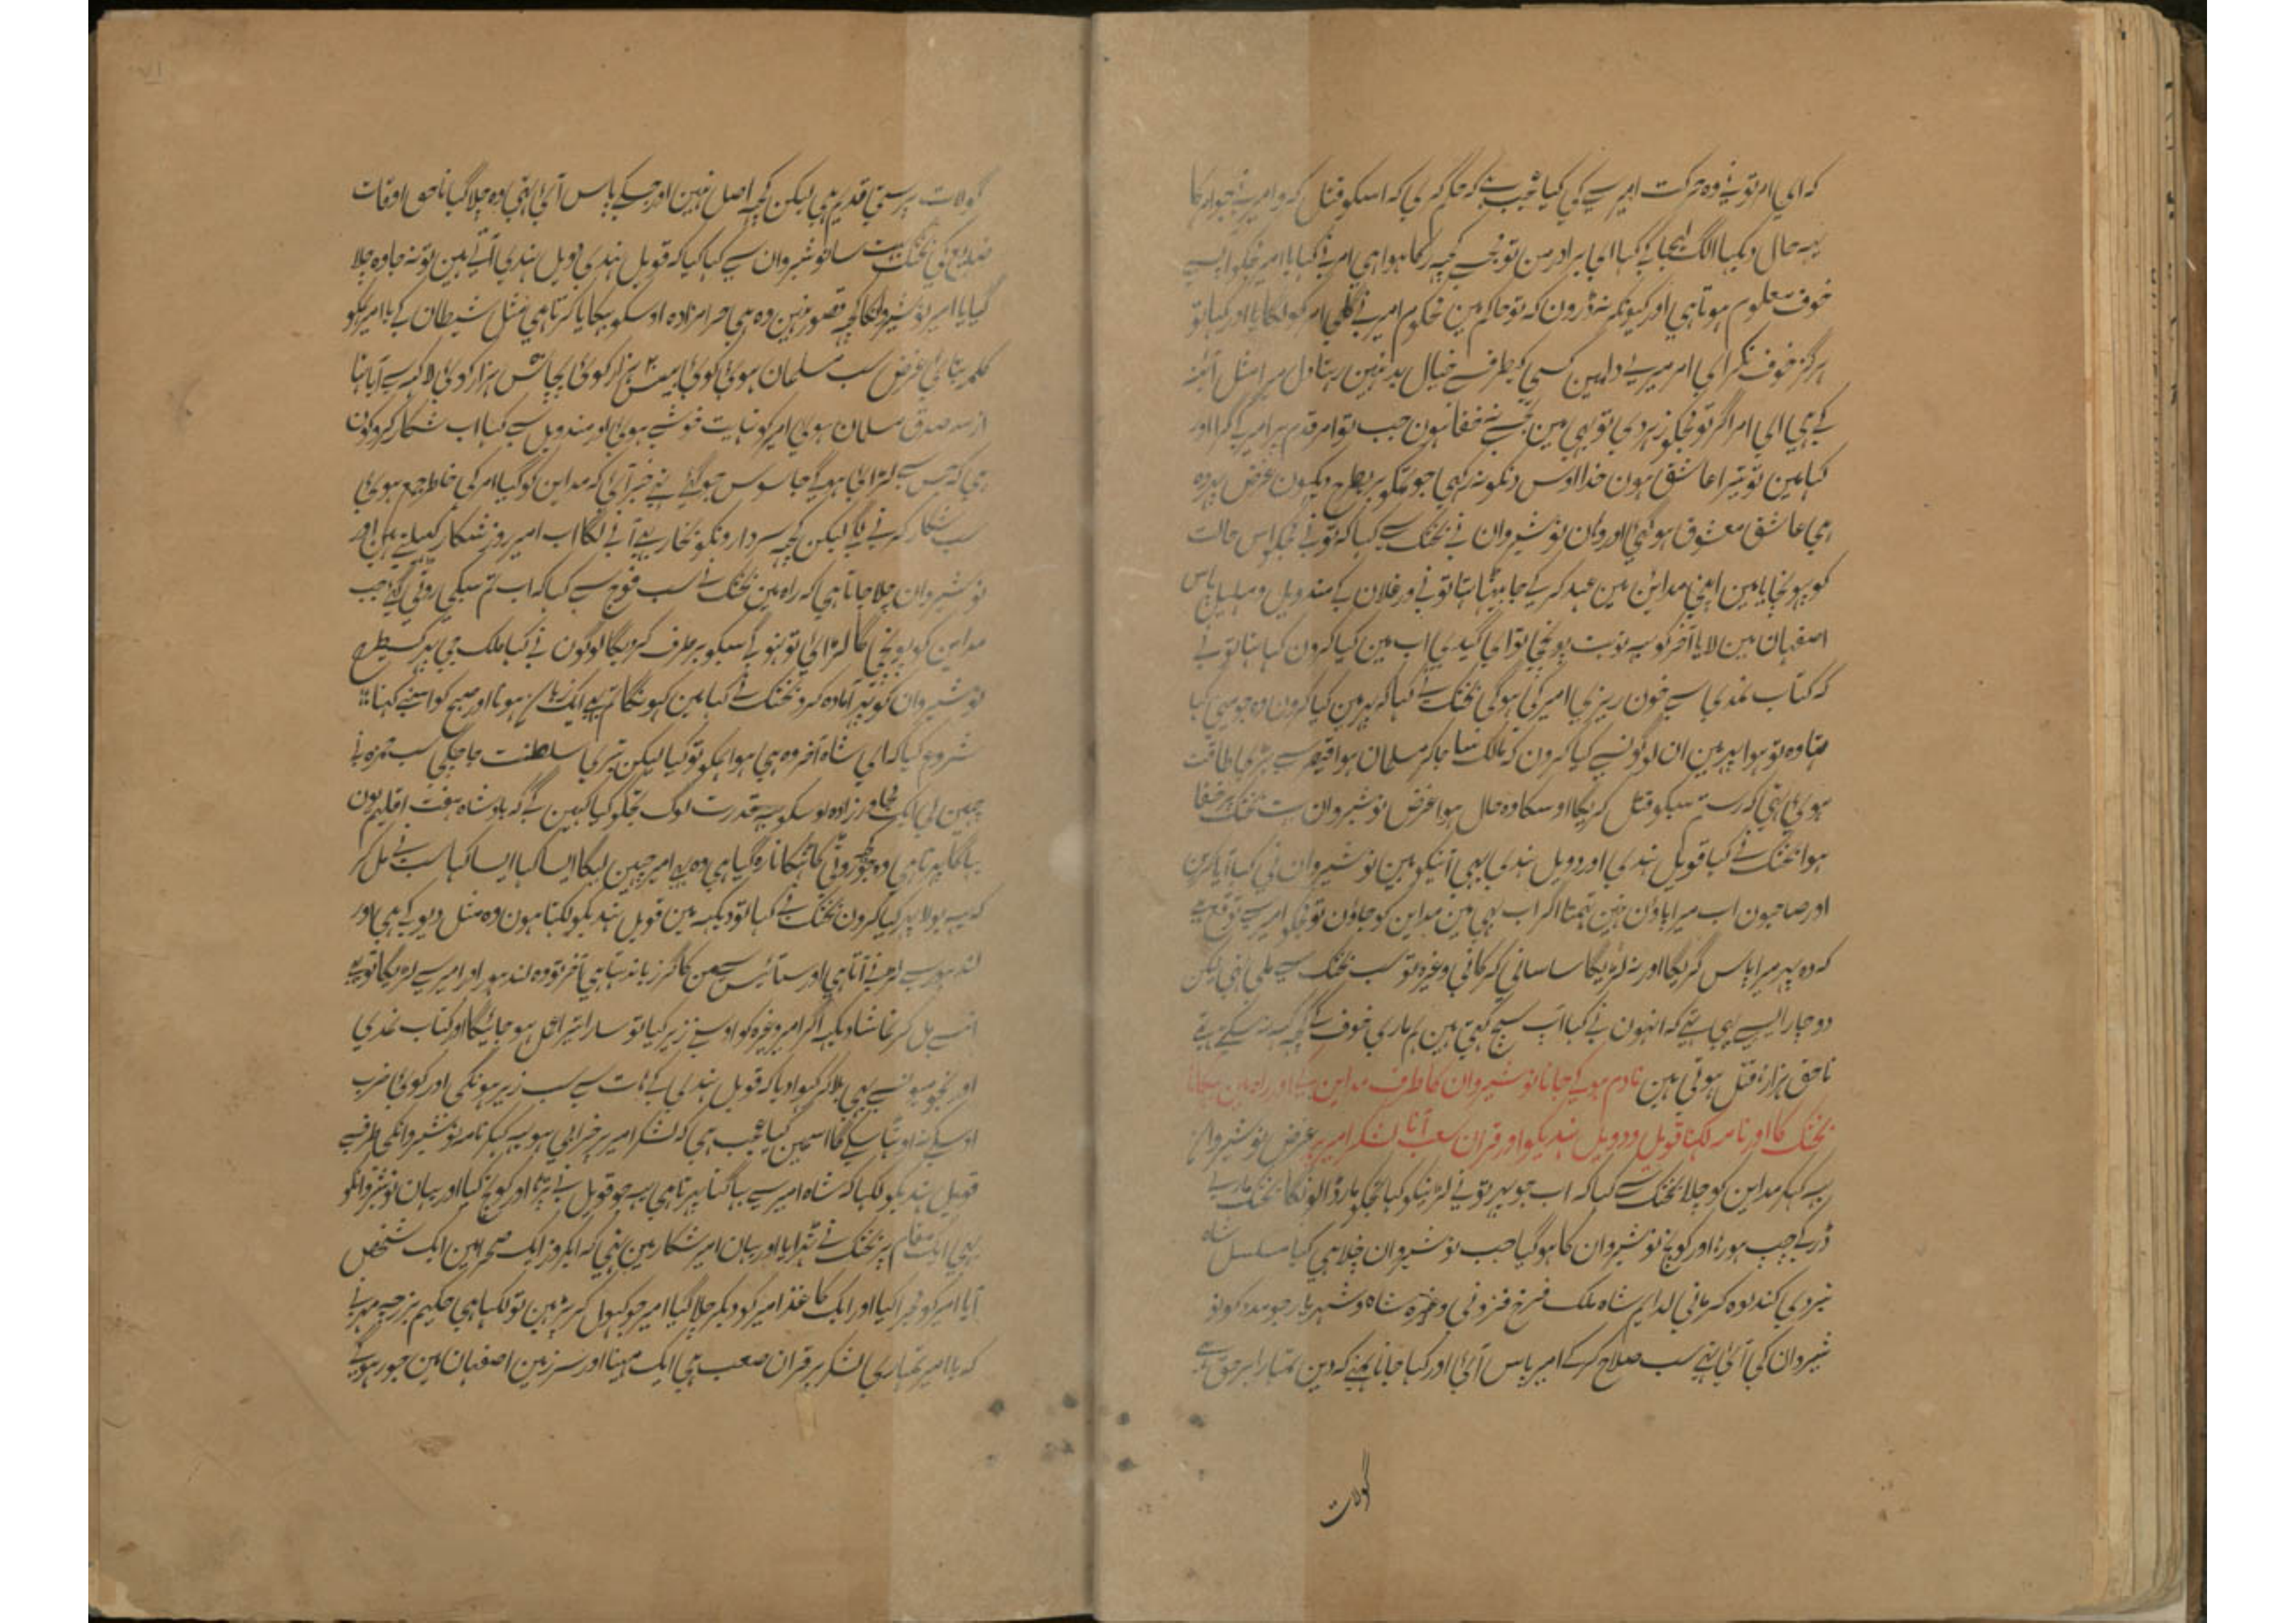 کہ ای امر تونے وہ حرکت امیر سے کی کیا عجب ہے کہ حکم کری کہ اسکو قتل کرو امیر نے جو امر کا
یہہ حال دیکہا الگ لیجا کے کہا ای برادر من تو نے کچہہ رکہا ہوا ہی امر نے کہا یا امیر مجکو آپسے
خوف معلوم ہوتا ہی اور کیونکہ نہ ڈرون کہ تو حاکم مین محکوم امیر نے گلی امر کو لگایا اور کہا تو
ہرگز خوف نکر ای امر میرے دلمین کسی کیطرف سے خیال بد نہین رہتا دل میرا مثل آئینہ
کے ہی ای امر اگر تو مجکو زہر دی تو بہی مین تجہسے نہ خفا ہون جب تو امر قدم پر امیر کے گرا اور
کہا مین تو تیرا عاشق ہون خدا اوس دنکو نہ رکہی جو تمکو بری طرح دیکہون غرض پہر وہ
ہی عاشق معشوق ہو گئی اور وان نوشیروان نے بختک سے کہا کہ تو نے مجکو اس حالت
کو پہونچایا مین اچہی مداین مین عہد کر کے جا بیٹہا تہا تو نے ورغلان کے مندویل و مہلیل پاس
اصفہان مین لایا آخر کو یہہ نوبت پہونچی تو ای گیدی اب مین کیا کرون کہا تہا تو نے
کہ کتاب نمدی سے خون ریزی امیر کی ہوگی بختک نے کہا کہ پہر مین کیا کرون وہ جو مینی کہا
تہا وہ تو ہوا پہر مین ان لوگونسے کیا کرون کہ مالک تہا جا کر مسلمان ہوا قیصر سے بڑی طاقت
ہوئی تہی کہ رستم سبکو قتل کریگا اوسکا وہ حال ہوا غرض نوشیروان بہت بختک پر خفا
ہوا بختک نے کہا قویل ہندی اور دویل ہندی بہی آنیکو ہین نوشیروان نی کہا آیا کرین
اور صاحبون اب میرا پاؤن نہین تہمتا اگر اب بہی مین مداین کو جاؤن تو مجکو امیر سے توقع ہے
کہ وہ پہر میرا پاس کریگا اور نہ لڑیگا ساسانی کرکانی وغیرہ تو سب بختک سے ملی تہی لیکن
دو چار ایسے بہی تہے کہ انہون نے کہا آپ سچ کہتی ہین ہم ماری خوف کے کچہہ کہہ نہ سکے تہے
ناحق ہزارہا قتل ہوتی ہین نادم ہوکے جانا نوشیروان کا طرف مداین کے اور راہ مین بہکانا
بختک کا اور نامہ لکہنا قویل و دویل ہندیکو اور قران صعب آنا لشکر امیر پر غرض نوشیروان
یہہ کہکر مداین کو چلا بختک سے کہا کہ اب جو پہر تو نے لڑنیکو کہا تجکو مار ڈالونگا بختک مارے
ڈر کے چپ ہو رہا اور کوچ نوشیروان کا ہو گیا جب نوشیروان چلا ہی گیا سلسل شاہ
نبردی کند لوہ کرمانی لدایم شاہ ملک فرخ قزوینی وغیرہ شاہ و شہریار جو مدد کو نو
شیروان کی آئی تہے سب صلاح کر کے امیر پاس آئی اور کہا جانا ہمنے کہ دین تمہارا برحق ہے
گولات
گولات پرستی قدیم ہی لیکن کچہہ اصل نہین اور جسکے پاس آئی تہی وہ چلا گیا ناحق اوقات
ضایع کی بختک نے ساتہہ نوشیروان سے کہا کیا کہ قویل ہندی دویل ہندی آتے ہین تو نہ جا وہ چلا
گیا یا امیر نوشیروانکا کچہہ قصور نہین وہ ہی حرامزادہ اوسکو بہکایا کرتا ہی مثل شیطان کے یا امیر ہمکو
کلمہ بتائی غرض سب مسلمان ہوئی کوئی بیس ہزار کوئی پچاس ہزار کوئی لاکہہ سے آیا تہا
از سر صدق مسلمان ہوئی امیر کو نہایت خوشی ہوئی اور مندویل سے کہا اب شکار کرو کون
ہی کہ جس سے لڑائی ہوگے جاسوس جو گئے تہے خبر آئی کہ مداین کو گیا امیر کی خاطر جمع ہوئی
سب شکار کرنے لگے لیکن کچہہ سردارونکو بخار بہی آنے لگا اب امیر روز شکار کہیلتے ہین اور
نوشیروان چلا جاتا ہی کہ راہ مین بختک نے سب فوج سے کہا کہ اب تم سبکی روٹی گئی جب
مداین کو پہونچی گا لڑائی تو ہنو گے سبکو برطرف کریگا لوگون نے کہا ملک جی پہر کسیطرح
نوشیروان کو پہر آمادہ کرو بختک نے کہا مین کہونگا تم بہی ایک زبان ہونا اور صبح کو اسنے کہنا
شروع کیا کہ ای شاہ آخر وہ ہی ہوا ہمکو تو کیا لیکن تیری سلطنت جا چکی سب حمزہ نے
چہین لی ایک مجاور زادہ اوسکو یہہ قدرت لوگ تجکو کیا کہین گے کہ بادشاہ ہفت اقلیم یون
بہاگا پہرتا ہی وہ جو روٹی کا ٹہکانا رہ گیا ہی وہ بہی امیر چہین لیگا ایسا کہا ایسا کہا سب نے مل کر
کہ یہہ بولا پہر کیا کرون بختک نے کہا تو دیکہہ مین قویل ہندیکو لکہتا ہون وہ مثل دیو کے ہی اور
لندہور سے لڑنے آتا ہی اور ستائیس سی من کا گرز باندہتا ہی آخر تو وہ لندہور اور امیر سے لڑیگا تو بہی
انسے مل کر تماشا دیکہہ اگر امیر وغیرہ کو اوسنے زیر کیا تو سارا تیرا عمل ہو جائیگا اور کتاب نمدی
اور نجومیونسے بہی بلا کر کہوا دیا کہ قویل ہندی کے ہات سے سب زیر ہونگے اور کوئی ضرب
اوسکے نہ اوٹہا سکے گا اسمین کیا عجب ہی کہ لشکر امیر پر خرابی ہو یہہ کہکر نامہ نوشیروانکی طرف سے
قویل ہندیکو لکہا کہ شاہ امیر سے بہاگتا پہرتا ہی یہہ جو قویل نے پڑہا اور کوچ کیا اور یہان نوشیروانکو
یہی ایک مقام پر بختک نے ٹہرایا اور یہان امیر شکار مین تہی کہ ایکروز ایک صحرا مین ایک شخص
آیا امیر کو مجرا کیا اور ایک کاغذ امیر کو دیکر چلا گیا امیر جو کہول کر پڑہین تو لکہا ہی حکیم بزرجمہر نے
کہ یا امیر تمہاری لشکر پر قران صعب ہی ایک مہینا اور سرزمین اصفہان مین جو رہوگے